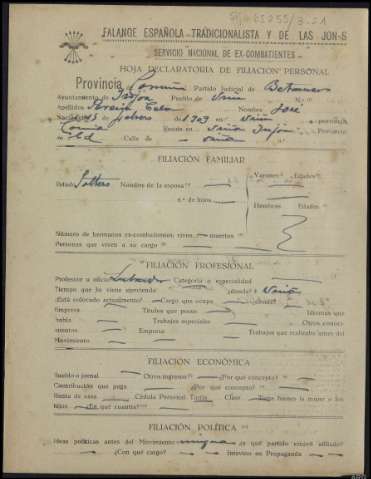 FALANGE ESPAÑOLA TRADICIONALISTA Y DE LAS JON-S
SERVICIO NACIONAL DE EX-COMBATIENTES
HOJA DECLARATORIA DE FILIACION PERSONAL
Provincia Coruña Partido Judicial de Betanzos
Ayuntamiento de Irijoa Pueblo de N.º
Apellidos Nombre José
Nacido 15 Febrero 1903 en provincia
Coruña Reside en Irijoa
Calle de
FILIACIÓN FAMILIAR
Estado Soltero Nombre de la esposa Varones Edades
n.º de hijos
Hembras Edades
Número de hermanos ex-combatientes, vivos muertos
Personas que viven a su cargo
FILIACIÓN PROFESIONAL
Profesión u oficio Labrador Categoría o especialidad
Tiempo que lo viene ejerciendo ¿dónde?
¿Está colocado actualmente? Cargo que ocupa ¿desde?
Empresa Títulos que posee Idiomas que
habla Trabajos especiales Otros conoci-
mientos Empresa Trabajos que realizaba antes del
Movimiento
FILIACIÓN ECONÓMICA
Sueldo o jornal Otros ingresos ¿Por qué concepto?
Contribución que paga ¿Por qué concepto?
Renta de casa Cédula Personal Tarifa Clase Tiene bienes la mujer o los
hijos ¿En qué cuantía?
FILIACIÓN POLÍTICA
Ideas políticas antes del Movimiento ninguna ¿a qué partido estuvo afiliado?
¿Con qué cargo? Intervino en Propaganda